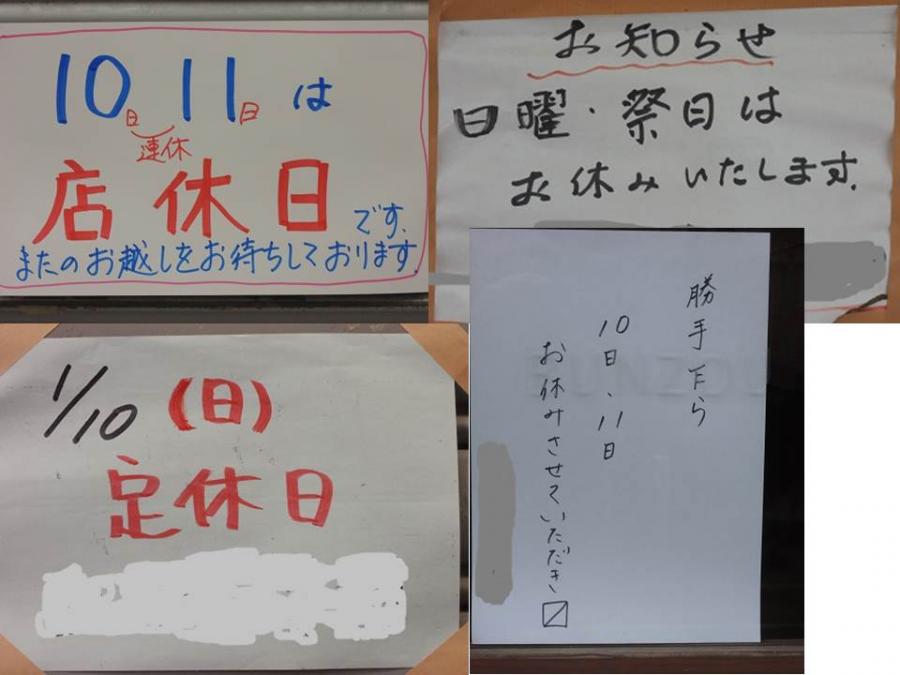 10日 11日 は
連休
店休日です.
またのお越しをお待ちしております
お知らせ
日曜・祭日は
お休みいたします.
1/10 (日)
定休日
勝手乍ら
10日、11日
お休みさせていただき〼